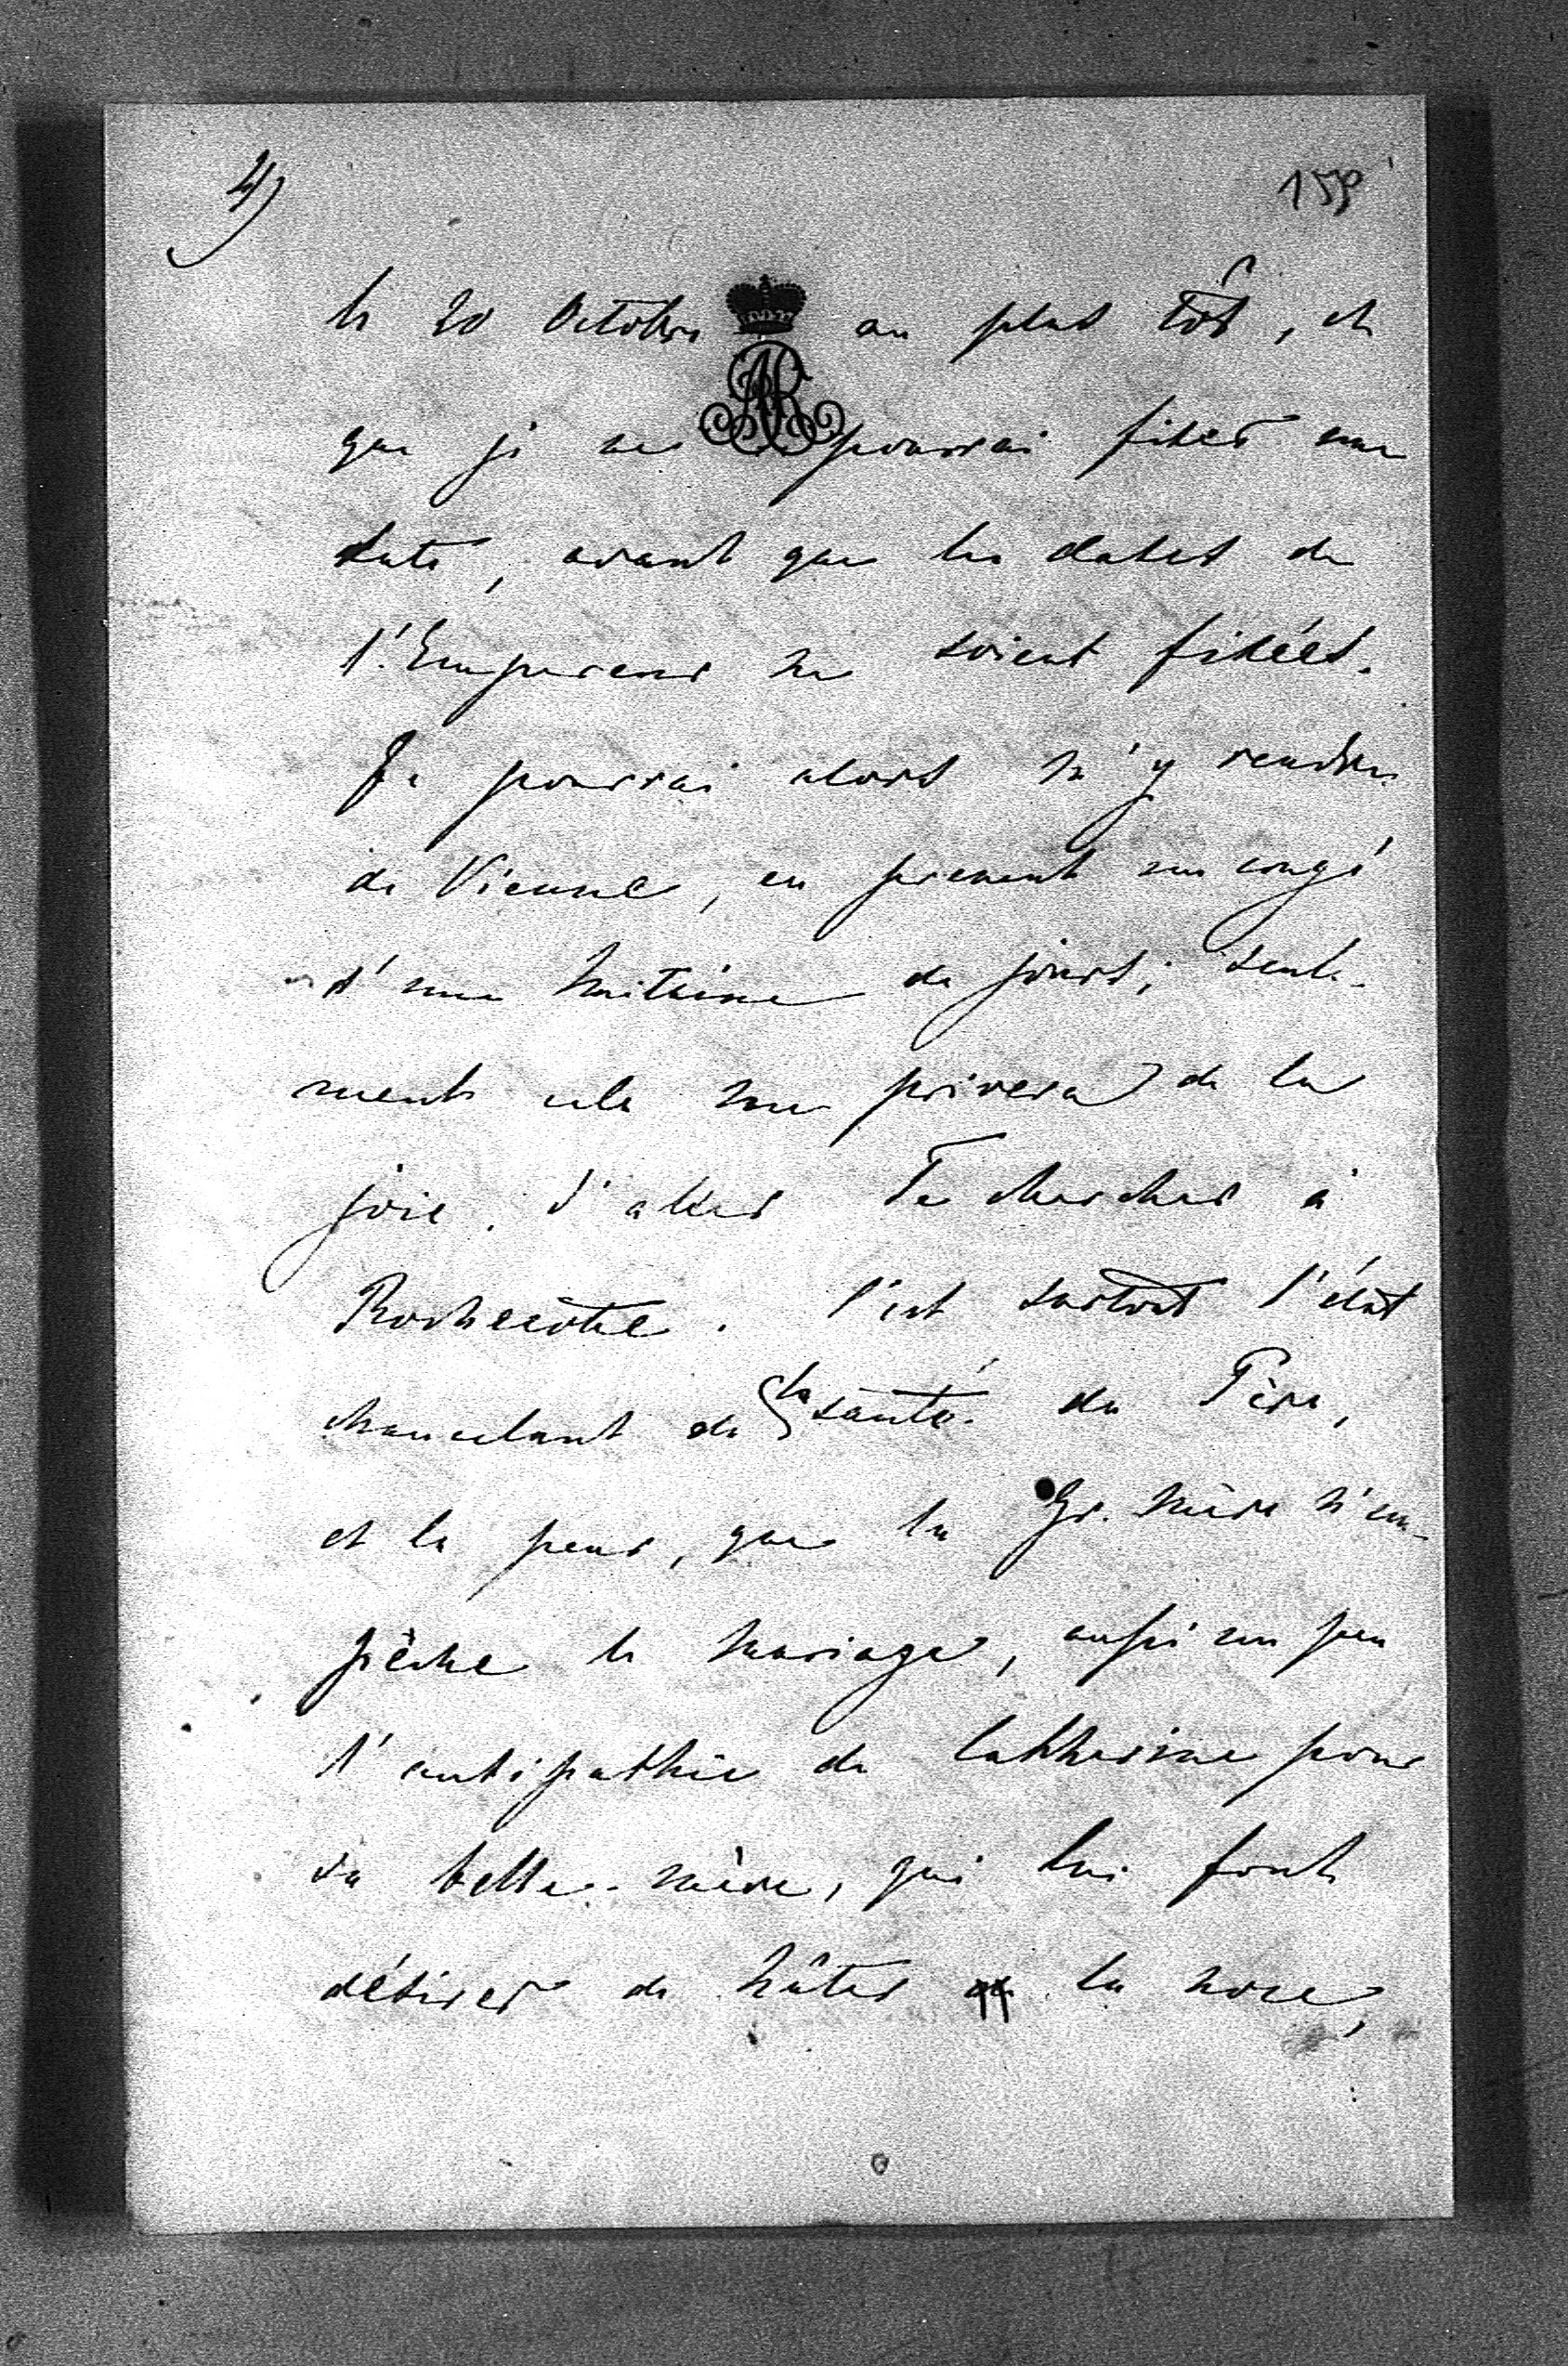 4)
159
le 20 Octobre au plus tôt, et
que je ne pourrai fixer une
date, avant que les dates de
l'Empereur ne soient fixées.
Je pourrai alors m'y rendre
de Vienne, en prenant un congé
d'une huitaine de jours; seule-
ment cela me privera de la
joie d'aller Te chercher à
Rochecotte. C'est surtout l'état
chancelant de la santé du Père,
et la peur, que la Gr. Mère n'em-
pêche le mariage, aussi un peu
l'antipathie de Catherine pour
sa belle-mère, qui lui font
désirer de hâter la noce,